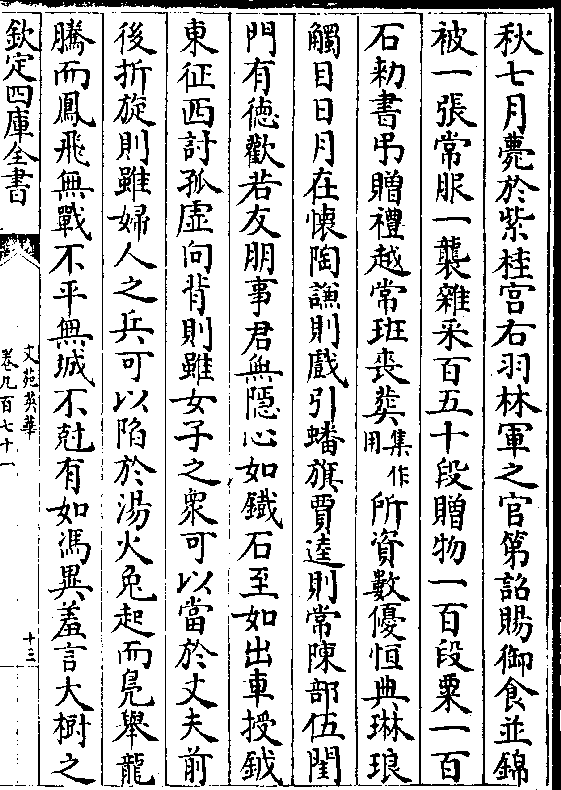 秋七月薨於紫桂宫右羽林軍之官第詔賜御食並錦
被一張常服一襲雜采百五十段贈物一百段粟一百
石勅書弔贈禮越常班喪葬集作用所資數優恒典琳琅
觸目日月在懷陶謙則戲引蟠旗賈逵則常陳部伍閨
門有徳歡若友朋事君無隠心如鐵石至如出車授鉞
東征西討孤虛向背則雖女子之衆可以當於丈夫前
後折旋則雖婦人之兵可以陷於湯火兔起而鳧舉龍
騰而鳳飛無戰不平無城不尅有如馮異羞言大樹之
欽定四庫全書
文苑英華
卷九百七十一
十三